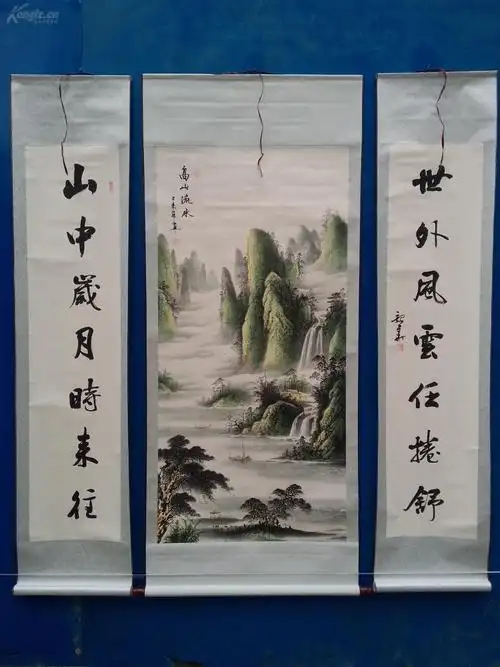 Kongfz.cn
世外風雲任捲舒
高山流水
山中歲月時来往